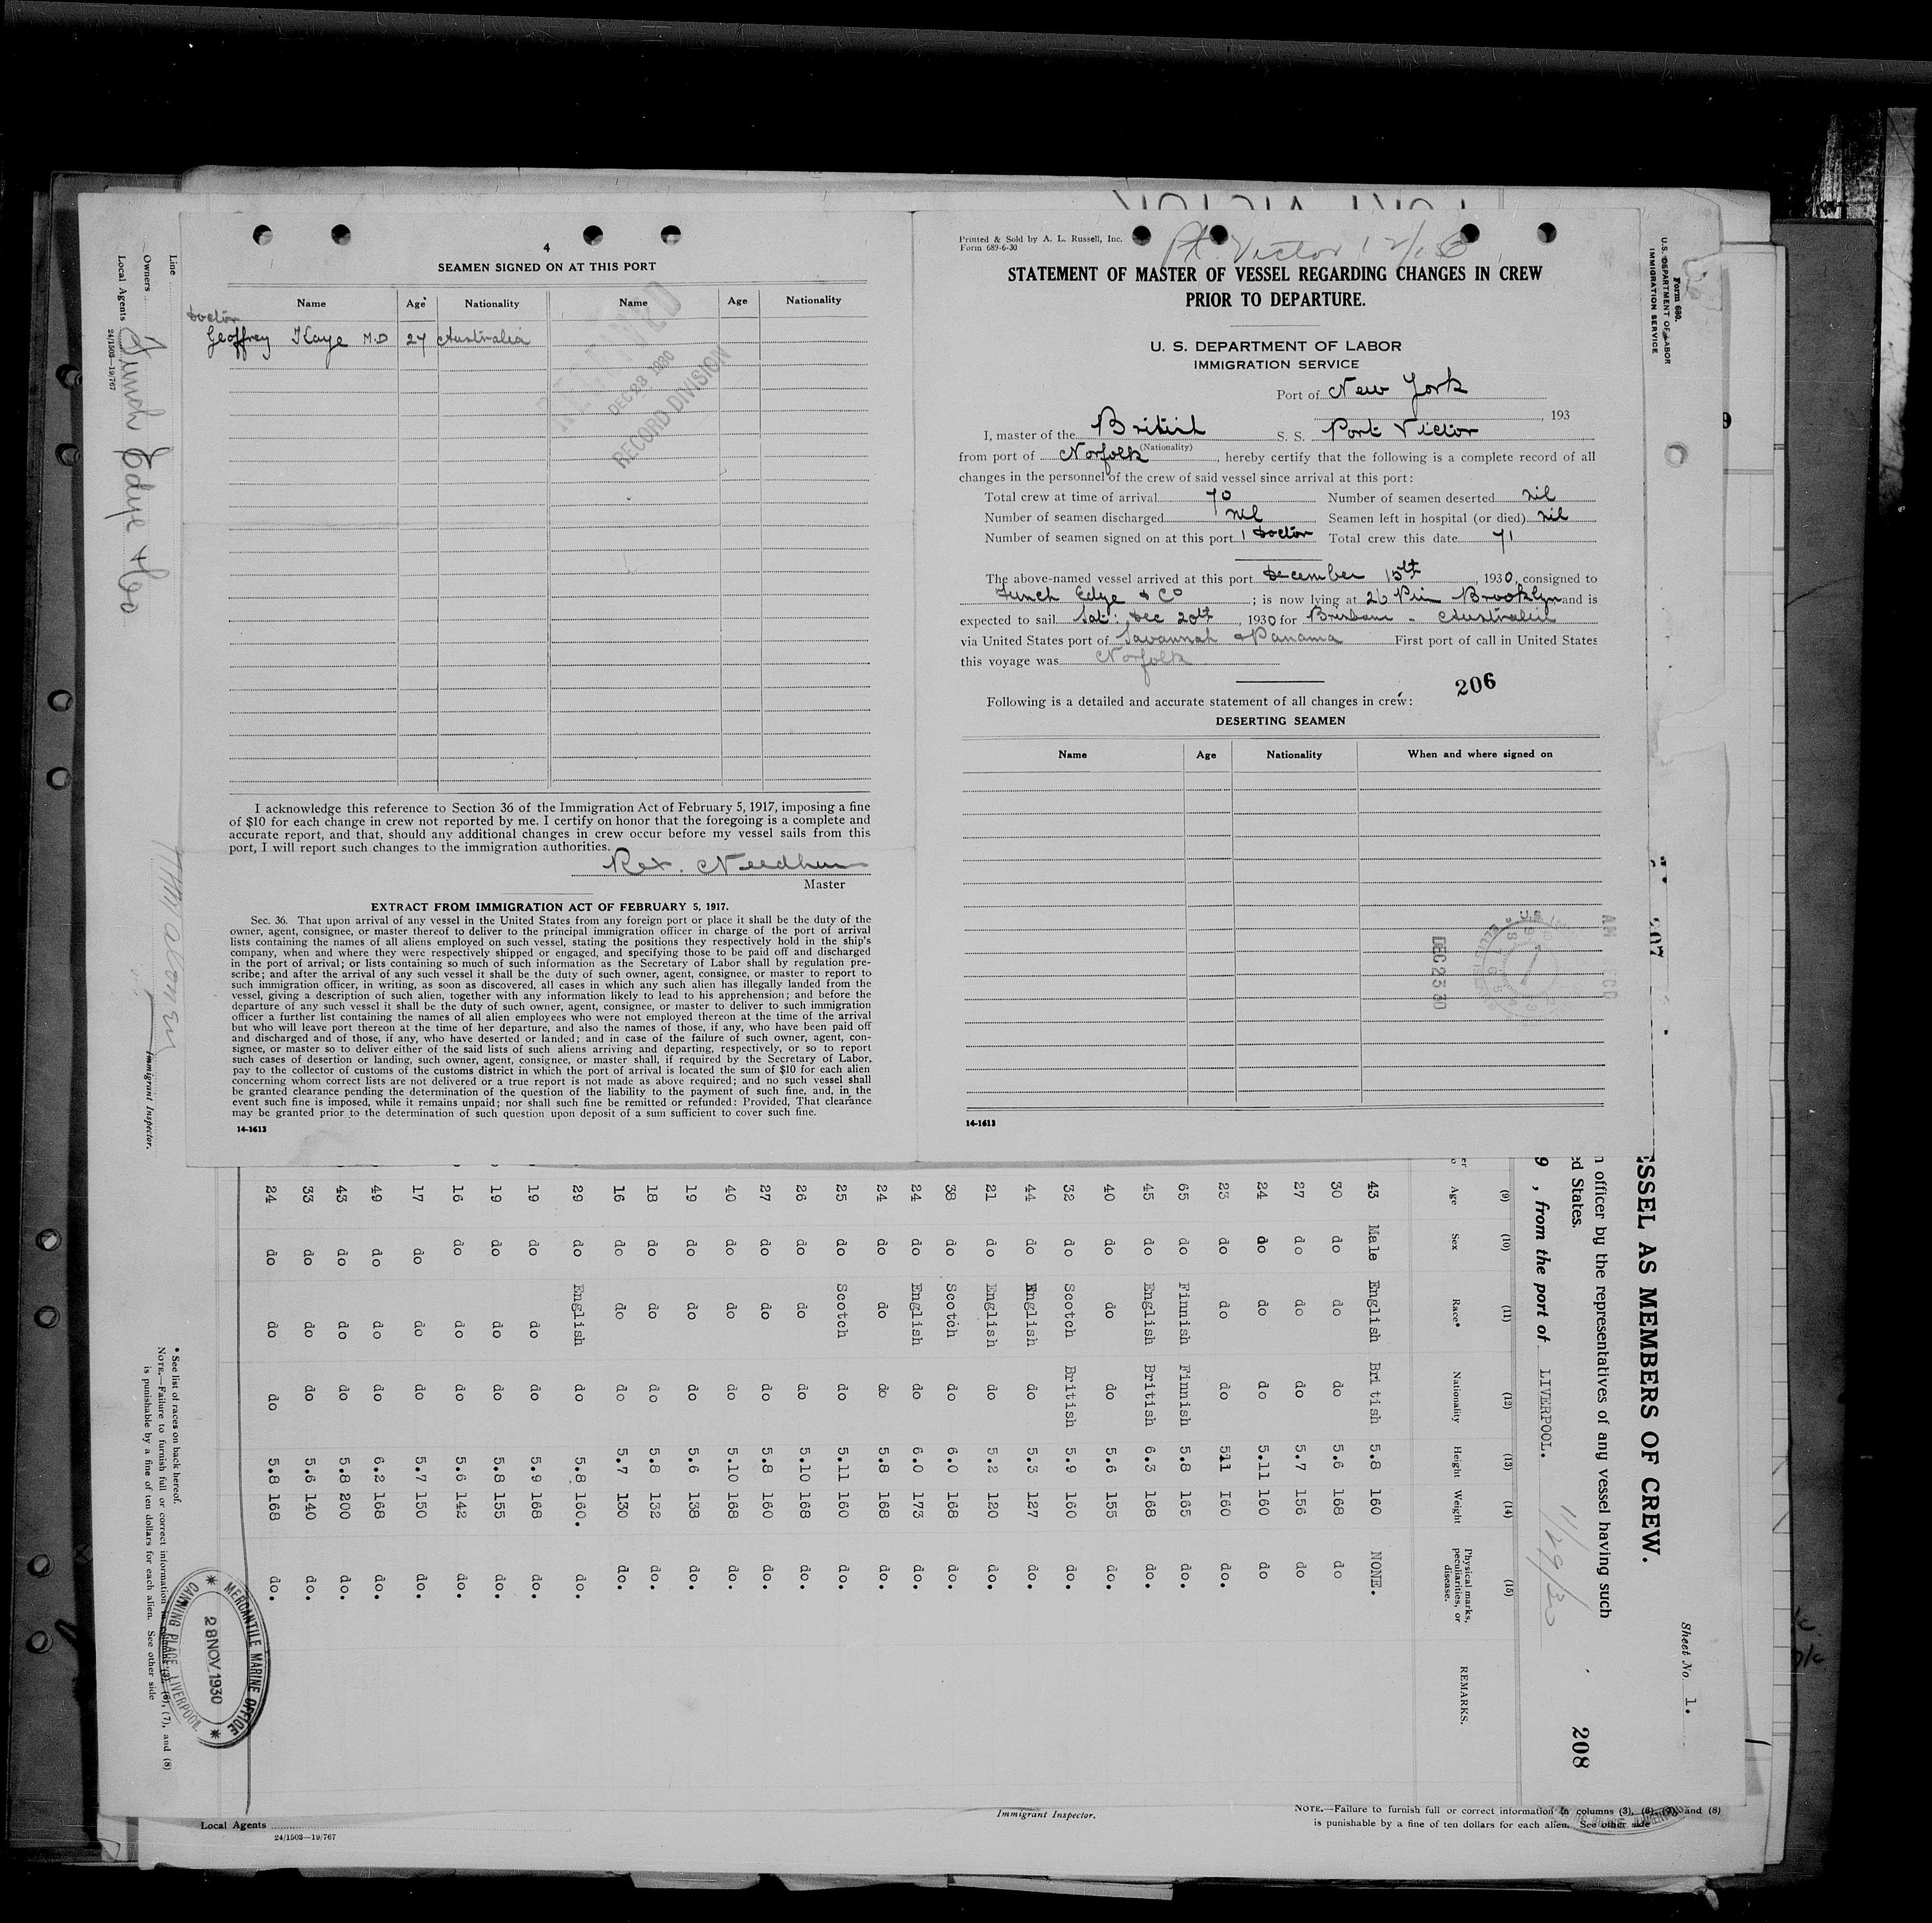 4
SEAMEN SIGNED ON AT THIS PORT
Name Age Nationality Name Age Nationality
Doctor
Geoffrey Kaye M.D 27 Australia
RECEIVED
DEC 23 1930
RECORD DIVISION
I acknowledge this reference to Section 36 of the Immigration Act of February 5, 1917, imposing a fine
of $10 for each change in crew not reported by me. I certify on honor that the foregoing is a complete and
accurate report, and that, should any additional changes in crew occur before my vessel sails from this
port, I will report such changes to the immigration authorities.
Rex. Needham
Master
EXTRACT FROM IMMIGRATION ACT OF FEBRUARY 5, 1917.
Sec. 36. That upon arrival of any vessel in the United States from any foreign port or place it shall be the duty of the
owner, agent, consignee, or master thereof to deliver to the principal immigration officer in charge of the port of arrival
lists containing the names of all aliens employed on such vessel, stating the positions they respectively hold in the ship's
company, when and where they were respectively shipped or engaged, and specifying those to be paid off and discharged
in the port of arrival; or lists containing so much of such information as the Secretary of Labor shall by regulation pre-
scribe; and after the arrival of any such vessel it shall be the duty of such owner, agent, consignee, or master to report to
such immigration officer, in writing, as soon as discovered, all cases in which any such alien has illegally landed from the
vessel, giving a description of such alien, together with any information likely to lead to his apprehension; and before the
departure of any such vessel it shall be the duty of such owner, agent, consignee, or master to deliver to such immigration
officer a further list containing the names of all alien employees who were not employed thereon at the time of the arrival
but who will leave port thereon at the time of her departure, and also the names of those, if any, who have been paid off
and discharged and of those, if any, who have deserted or landed; and in case of the failure of such owner, agent, con-
signee, or master so to deliver either of the said lists of such aliens arriving and departing, respectively, or so to report
such cases of desertion or landing, such owner, agent, consignee, or master shall, if required by the Secretary of Labor,
pay to the collector of customs of the customs district in which the port of arrival is located the sum of $10 for each alien
concerning whom correct lists are not delivered or a true report is not made as above required; and no such vessel shall
be granted clearance pending the determination of the question of the liability to the payment of such fine, and, in the
event such fine is imposed, while it remains unpaid; nor shall such fine be remitted or refunded: Provided, That clearance
may be granted prior to the determination of such question upon deposit of a sum sufficient to cover such fine.
14-1613
Printed & Sold by A. L. Russell, Inc.
Form 689-6-30
Pt. Victor
STATEMENT OF MASTER OF VESSEL REGARDING CHANGES IN CREW
PRIOR TO DEPARTURE.
U. S. DEPARTMENT OF LABOR
IMMIGRATION SERVICE
Port of New York
, 193
I, master of the British S. S. Port Victor
(Nationality)
from port of Norfolk, hereby certify that the following is a complete record of all
changes in the personnel of the crew of said vessel since arrival at this port:
Total crew at time of arrival 70 Number of seamen deserted nil
Number of seamen discharged nil Seamen left in hospital (or died) nil
Number of seamen signed on at this port 1 Doctor Total crew this date 71
The above-named vessel arrived at this port December 15th, 1930, consigned to
Funch Edye & Co; is now lying at 26 Pier Brooklyn and is
expected to sail Sat: Dec 20th, 1930 for Brisbane - Australia
via United States port of Savannah & Panama First port of call in United States
this voyage was Norfolk
206
Following is a detailed and accurate statement of all changes in crew:
DESERTING SEAMEN
Name Age Nationality When and where signed on
DEC 23 30
AM RECD
14-1613
Form 680.
U.S. DEPARTMENT OF LABOR
IMMIGRATION SERVICE
207
Sheet No 1.
SSEL AS MEMBERS OF CREW.
officer by the representatives of any vessel having such
ed States.
208
9 , from the port of LIVERPOOL. 11/29/30
(9) (10) (11) (12) (13) (14) (15)
Age Sex Race* Nationality Height Weight Physical marks, peculiarities, or disease. REMARKS.
43 Male English British 5.8 160 NONE.
30 do do do 5.6 168 do
27 do do do 5.7 156 do
24 do do do 5.11 160 do
23 do do do 511 160 do.
65 do Finnish Finnish 5.8 165 do.
45 do English British 6.3 168 do.
40 do do do 5.6 155 do.
32 do Scotch British 5.9 160 do.
44 do English do 5.3 127 do.
21 do English do 5.2 120 do.
38 do Scotch do 6.0 168 do.
24 do English do 6.0 173 do.
24 do do do 5.8 168 do.
25 do Scotch do 5.11 160 do.
26 do do do 5.10 168 do.
27 do do do 5.8 160 do.
40 do do do 5.10 168 do.
19 do do do 5.6 138 do.
18 do do do 5.8 132 do.
16 do do do 5.7 130 do.
29 do English do 5.8 160. do.
19 do do do 5.9 168 do.
19 do do do 5.8 155 do.
16 do do do 5.6 142 do.
17 do do do 5.7 150 do.
49 do do do 6.2 168 do.
43 do do do 5.8 200 do.
33 do do do 5.6 140 do.
24 do do do 5.8 168 do.
MERCANTILE MARINE OFFICE
28 NOV 1930
CANNING PLACE, LIVERPOOL
* See list of races on back hereof.
NOTE.—Failure to furnish full or correct information in columns (3), (6), (7), and (8)
is punishable by a fine of ten dollars for each alien. See other side
Immigrant Inspector.
Line
Owners
Local Agents Funch Edye & Co
24/1503—19/767
Local Agents
24/1503—19/767
Immigrant Inspector.
NOTE.—Failure to furnish full or correct information in columns (3), (6), (7), and (8)
is punishable by a fine of ten dollars for each alien. See other side